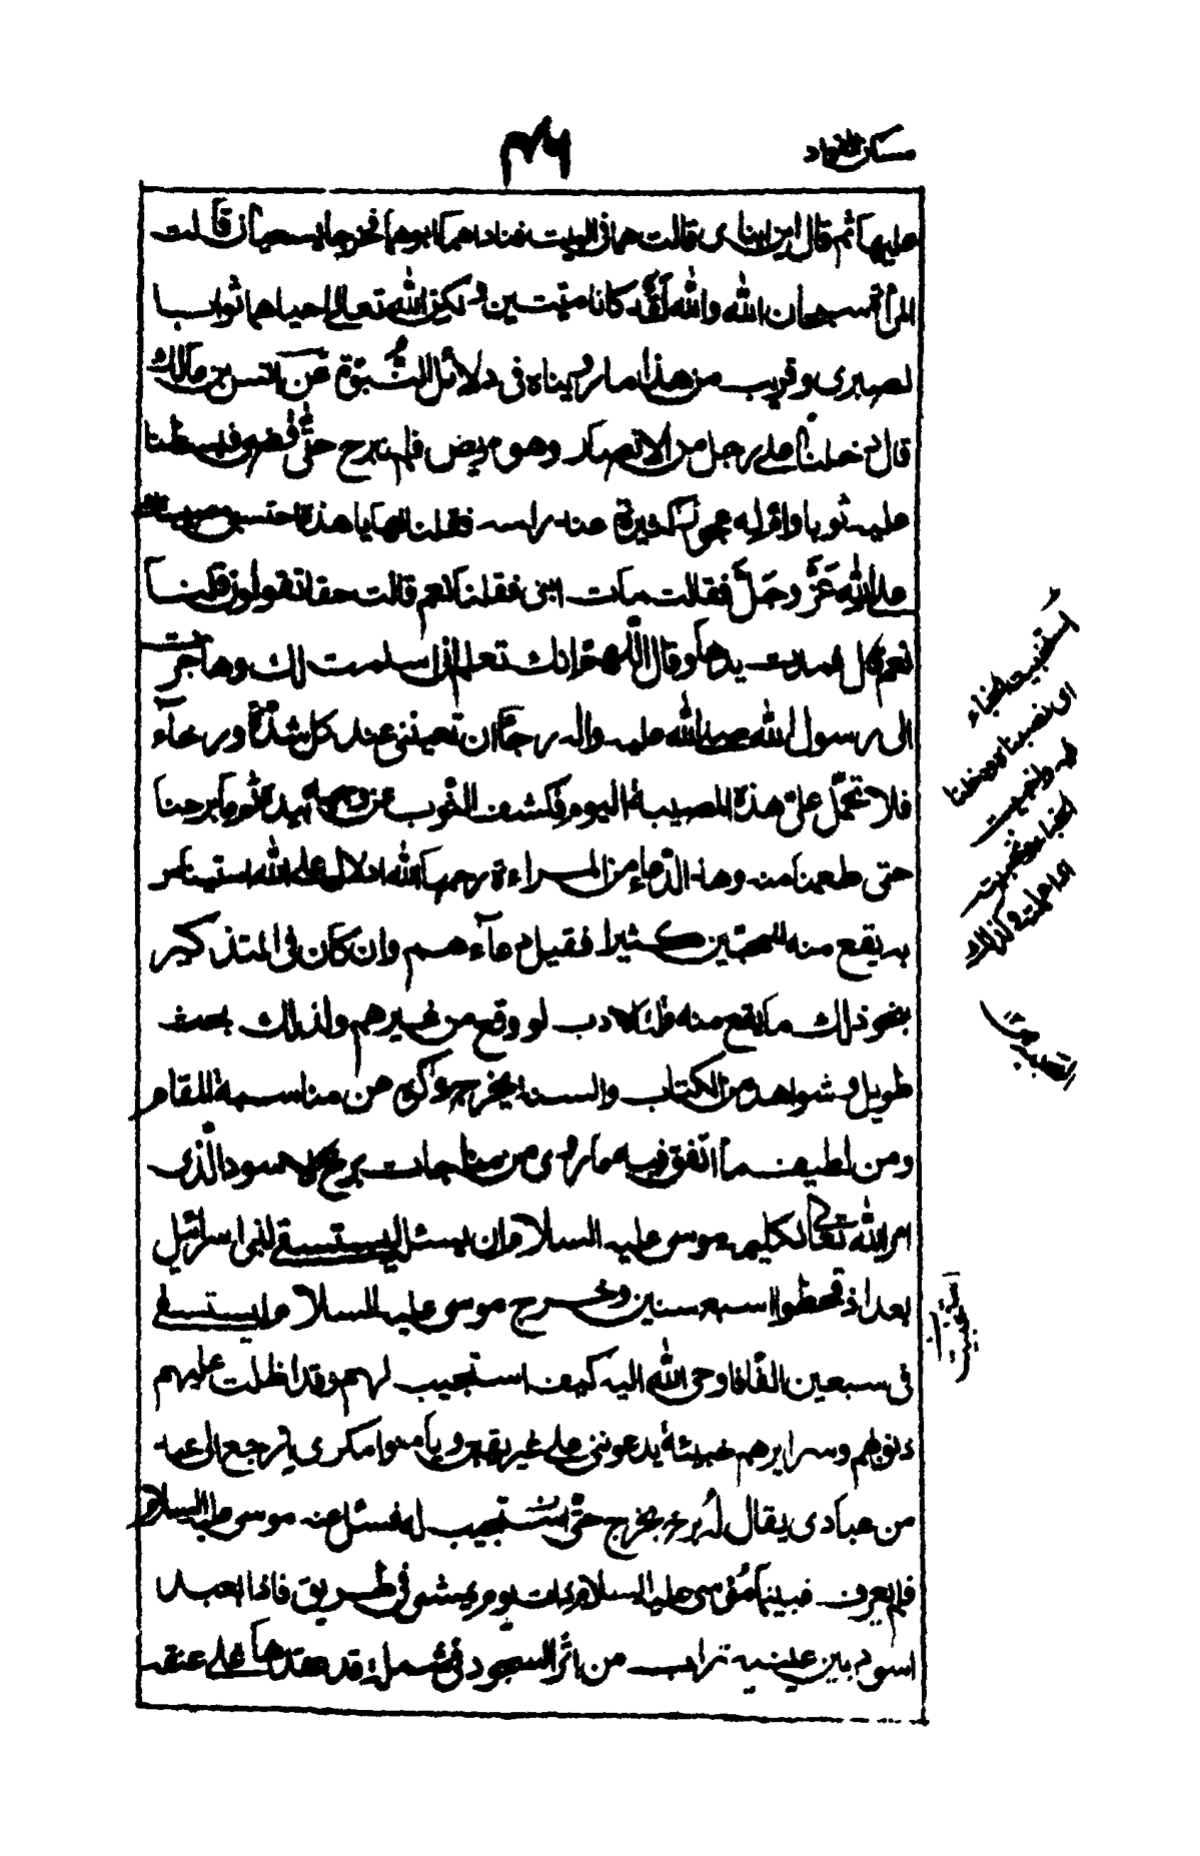 مسكن الفؤاد
۴۶
عليها ثم قال اين ابناى قالت هما فى البيت فناداهما ابوهما فخرجا يسعيان قالت
المرأة سبحان الله والله لقد كانا ميتين ولكن الله تعالى احياهما ثوابا
لصبرى وقريب من هذا ما رويناه فى دلائل النبوة عن انس بن مالك
قال دخلنا على رجل من الانصار وهو مريض فلم نبرح حتى قضى فبسطنا
عليه ثوبا وام له عجوز كبيرة عند راسه فقلنا لها يا هذه احتسبى مصيبتك
على الله عز وجل فقالت مات ابنى فقلنا نعم قالت حقا تقولون قلنا
نعم قال فمدت يدها وقال اللهم انك تعلم انى اسلمت لك وهاجرت
الى رسول الله صلى الله عليه واله رجاء ان تعيننى عند كل شدة ورخاء
فلا تحمل على هذه المصيبة اليوم فكشف الثوب عن وجهه بيده ثم ما برحنا
حتى طعمنا معه وهذا الدعاء من المراءة رحمها الله ادلال على الله استيناس
به يقع منه للمحبين كثيرا فقيل دعاءهم وان كان فى التذكير
بنحو ذلك ما يقع منه قلة الادب لو وقع من غيرهم ولذلك بحث
طويل وشواهد من الكتاب والسنة يخرج ذكره عن مناسبة المقام
ومن لطيف ما اتفق فيه ما روى من مناجات برخ الاسود الذى
امر الله تعالى كليمه موسى عليه السلام ان يسئل ليستسقى لبنى اسرائيل
بعد اذ قحطوا سبع سنين وخرج موسى عليه السلام ليستسقى
فى سبعين الفا فاوحى الله اليه كيف استجيب لهم وقد اظلت عليهم
ذنوبهم وسرايرهم خبيثة يدعوننى على غير يقين ويأمنوا مكرى ارجع الى عبد
من عبادى يقال له برخ يخرج حتى استجيب له فسئل عنه موسى عليه السلام
فلم يعرف فبينما موسى عليه السلام ذات يوم يمشى فى طريق فاذا بعبد
اسود بين عينيه تراب من اثر السجود فى شملة قد عقدها على عنقه